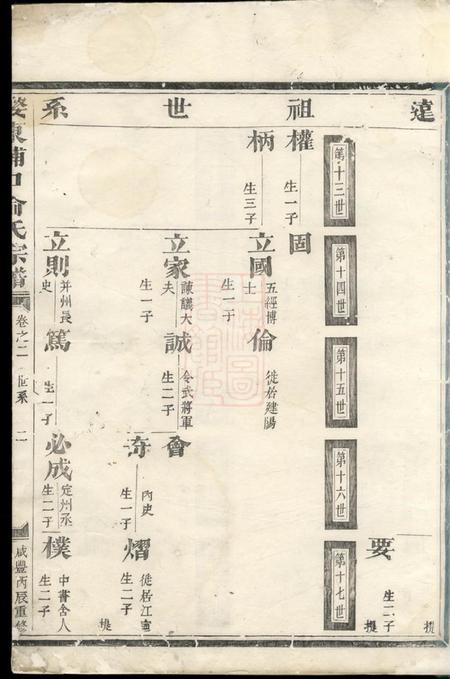 遠祖世系
要 生二子 提
提
第十三世
第十四世
第十五世
第十六世
第十七世
權 生一子
固
柄 生三子
立國 五經博士 生一子
倫 徙居建陽
立家 諫議大夫 生一子
誠 令武將軍 生二子
會
奇 內史 生一子
熠 徙居江寧 生二子 提
立則 并州長史 生一子
篤 生一子
必成 定州丞 生二子
樸 中書舍人 生二子
婺東浦口俞氏宗譜
卷之二 世系 二
咸豐丙辰重修